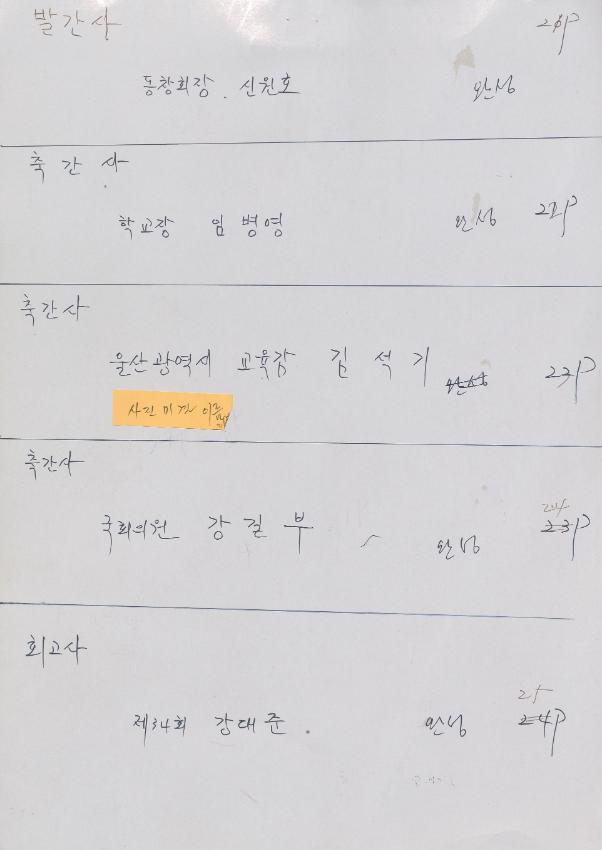 발간사
21p
동창회장. 신원호 완성
축간사
학교장 임병영 완성 22p
축간사
울산광역시 교육감 김석기 완성 23p
사진 미전
축간사
국회의원 강길부 완성 24 23p
회고사
제34회 강대준. 완성 25 24p